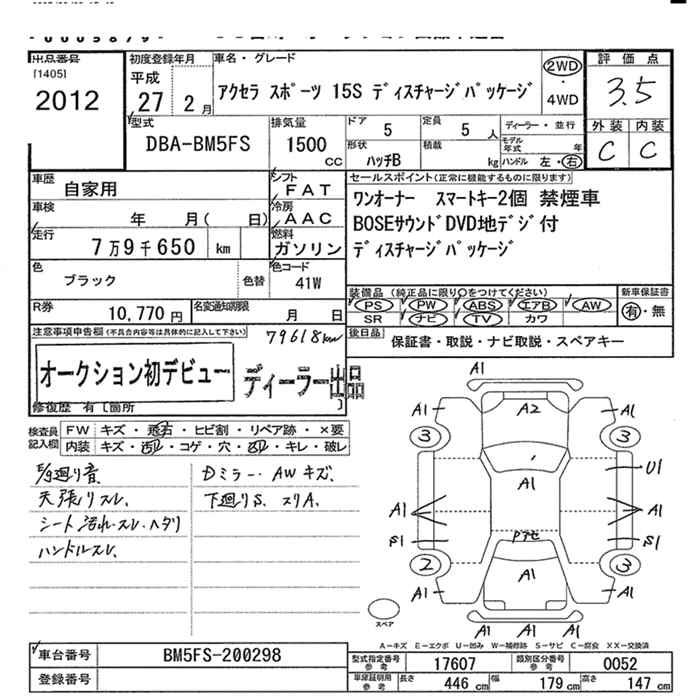 出品番号 初度登録年月 車名・グレード 評価点
[1405] 平成 2WD
2012 27年 2月 アクセラ スポーツ 15S ディスチャージパッケージ 4WD 3.5
型式 排気量 ドア 5 定員 5人 ディーラー・並行 外装 内装
DBA-BM5FS 1500cc 形状 ハッチB 積載 kg モデル年式 年 ハンドル 左・右 C C
車歴 自家用 シフト FAT セールスポイント(正常に機能するものに限ります)
車検 年 月( 日) 冷房 AAC ワンオーナー スマートキー2個 禁煙車
走行 7万9千650 km 燃料 ガソリン BOSEサウンドDVD地デジ付
ディスチャージパッケージ
色 ブラック 色替 色コード 41W
装備品(純正品に限り○をつけてください) 新車保証書
R券 10,770円 名変通知期限 月 日 PS PW ABS エアB AW 有・無
SR ナビ TV カワ
注意事項申告欄(不具合内容等は具体的に記入して下さい) 79618km
後日品 保証書・取説・ナビ取説・スペアキー
オークション初デビュー ディーラー出品
修復歴 有〔箇所 〕
検査員記入欄 FW キズ・飛石・ヒビ割・リペア跡・×要
内装 キズ・汚れ・コゲ・穴・・キレ・破レ
廻り音 Dミラー・AWキズ、
天張りスレ 下廻りS、スリA、
シート汚れ・スレ・ヘタリ
ハンドルスレ、
A1
A1 A2 A1
3 3
A1 U1
A1 A1
S1 アセ S1
2 A1 3
A1 A1
スペア A1
A-キズ E-エクボ U-凹み W-補修跡 S-サビ C-腐食 XX-交換済
車台番号 BM5FS-200298
型式指定番号 参考 17607 類別区分番号 参考 0052
登録番号
車庫証明用 参考 長さ 446cm 幅 179cm 高さ 147cm